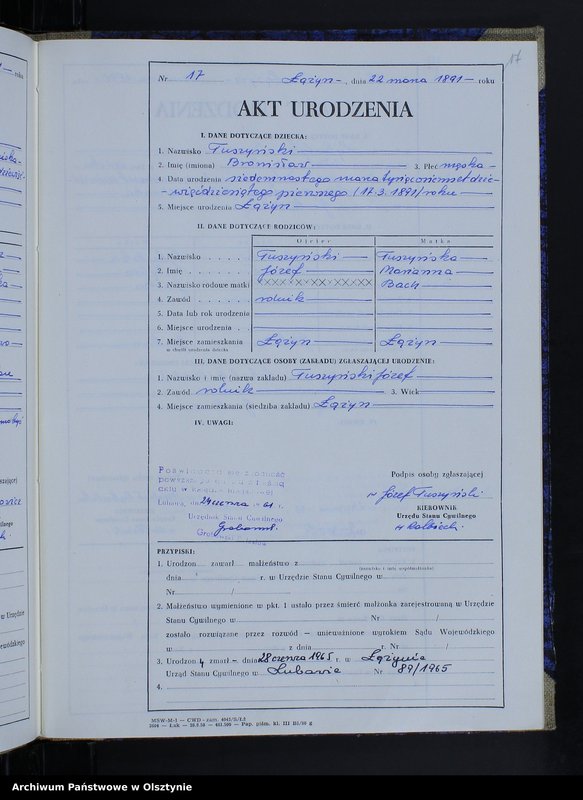 17
Nr 17 Łążyn -, dnia 22 marca 1891 - roku
AKT URODZENIA
I. DANE DOTYCZĄCE DZIECKA:
1. Nazwisko Tuszyński
2. Imię (imiona) Bronisław 3. Płeć męska -
4. Data urodzenia siedemnastego marca tysiąc osiemset dzie-
- więćdziesiątego pierwszego (17.3.1891) roku
5. Miejsce urodzenia Łążyn
II. DANE DOTYCZĄCE RODZICÓW:
Ojciec Matka
1. Nazwisko Tuszyński Tuszyńska
2. Imię Józef Marianna
3. Nazwisko rodowe matki XXXXXXXXXXXXX Bach
4. Zawód rolnik
5. Data lub rok urodzenia
6. Miejsce urodzenia
7. Miejsce zamieszkania Łążyn Łążyn
w chwili urodzenia dziecka
III. DANE DOTYCZĄCE OSOBY (ZAKŁADU) ZGŁASZAJĄCEJ URODZENIE:
1. Nazwisko i imię (nazwa zakładu) Tuszyński Józef
2. Zawód rolnik 3. Wiek
4. Miejsce zamieszkania (siedziba zakładu) Łążyn
IV. UWAGI:
Poświadcza się zgodność
Podpis osoby zgłaszającej
Lubawa, dn. 24 czerwca 1961 r.
Józef Tuszyński
Urzędnik Stanu Cywilnego
KIEROWNIK
Urzędu Stanu Cywilnego
PRZYPISKI:
1. Urodzon zawarł małżeństwo z
(nazwisko i imię współmałżonka)
dnia r. w Urzędzie Stanu Cywilnego w
Nr /
2. Małżeństwo wymienione w pkt. 1 ustało przez śmierć małżonka zarejestrowaną w Urzędzie
Stanu Cywilnego w Nr /
zostało rozwiązane przez rozwód - unieważnione wyrokiem Sądu Wojewódzkiego
w z dnia r. Nr /
3. Urodzon y zmarł - dnia 28 czerwca 1965 r. w Łążynie
Urząd Stanu Cywilnego w Lubawie Nr 89/1965
4.
MSW-M-1 - CWD - zam.
Archiwum Państwowe w Olsztynie